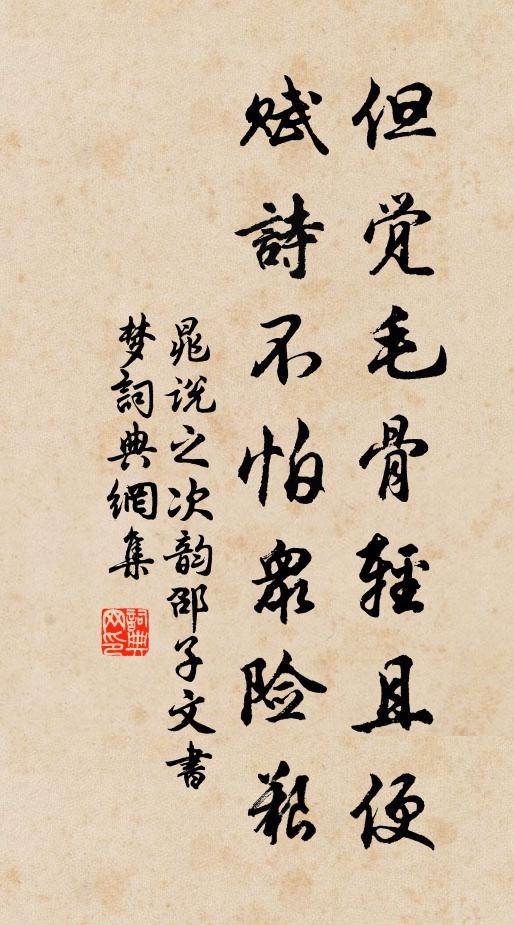 但觉毛骨輕且便
赋詩不怕衆险艱
晁说之次韵邵子文書
梦詞典網集
詞典
网印